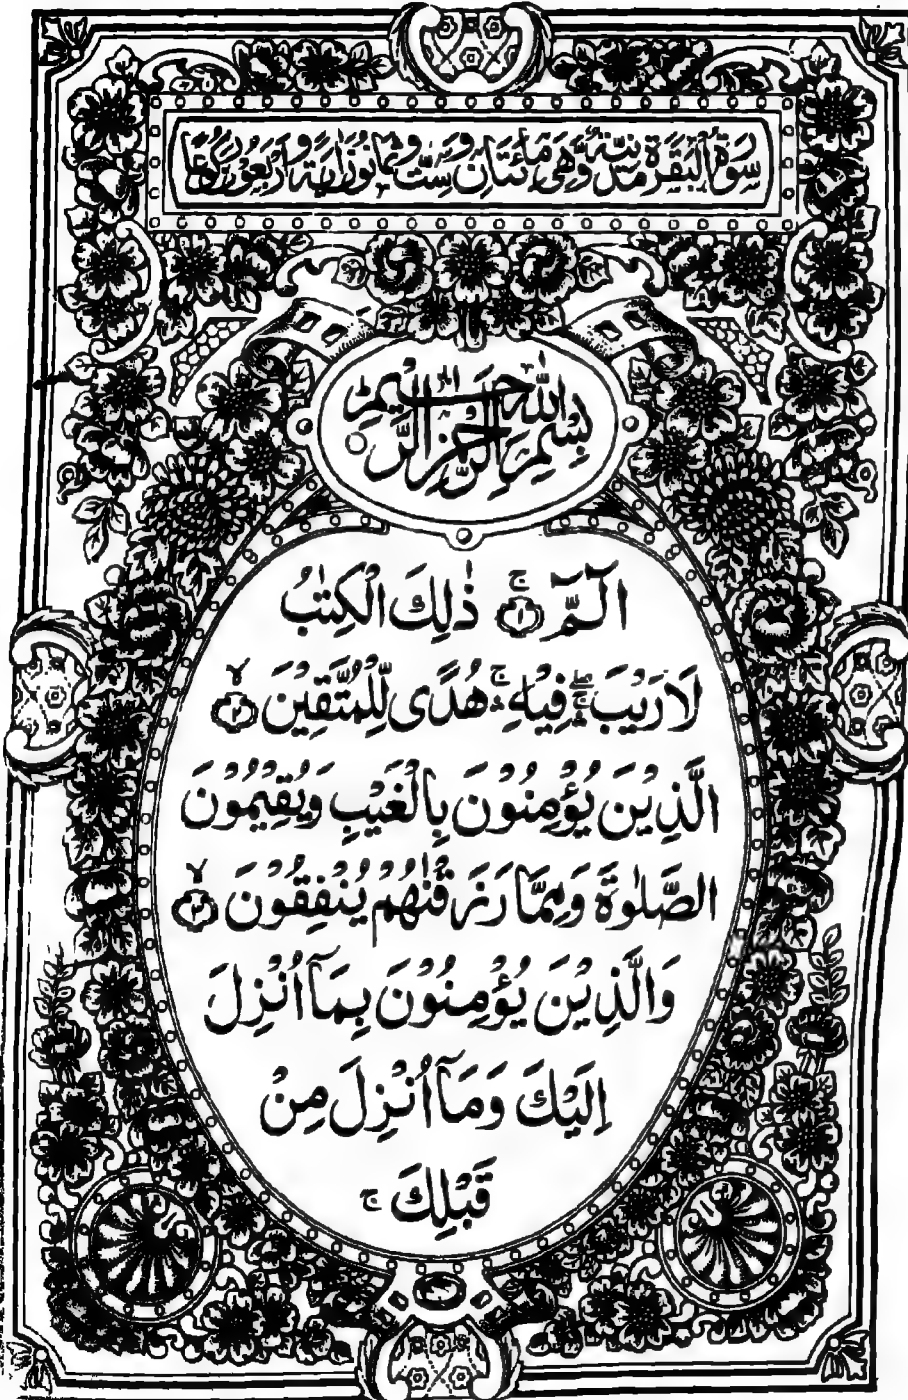 سُوْرَةُ الْبَقَرَةِ مَدَنِيَّةٌ وَّهِىَ مِائَتَانِ وَسِتٌّ وَّثَمَانُوْنَ اٰيَةً وَّاَرْبَعُوْنَ رُكُوْعًا
بِسْمِ اللّٰهِ الرَّحْمٰنِ الرَّحِيْمِ
الٓمّٓ ۚ‏﴿۱﴾ ذٰلِكَ الْكِتٰبُ
لَا رَيْبَ ۛۖ فِيْهِ ۛۚ هُدًى لِّلْمُتَّقِيْنَ ۙ‏﴿۲﴾
الَّذِيْنَ يُؤْمِنُوْنَ بِالْغَيْبِ وَيُقِيْمُوْنَ
الصَّلٰوةَ وَمِمَّا رَزَقْنٰهُمْ يُنْفِقُوْنَ ۙ‏﴿۳﴾
وَالَّذِيْنَ يُؤْمِنُوْنَ بِمَآ اُنْزِلَ
اِلَيْكَ وَمَآ اُنْزِلَ مِنْ
قَبْلِكَ ۚ